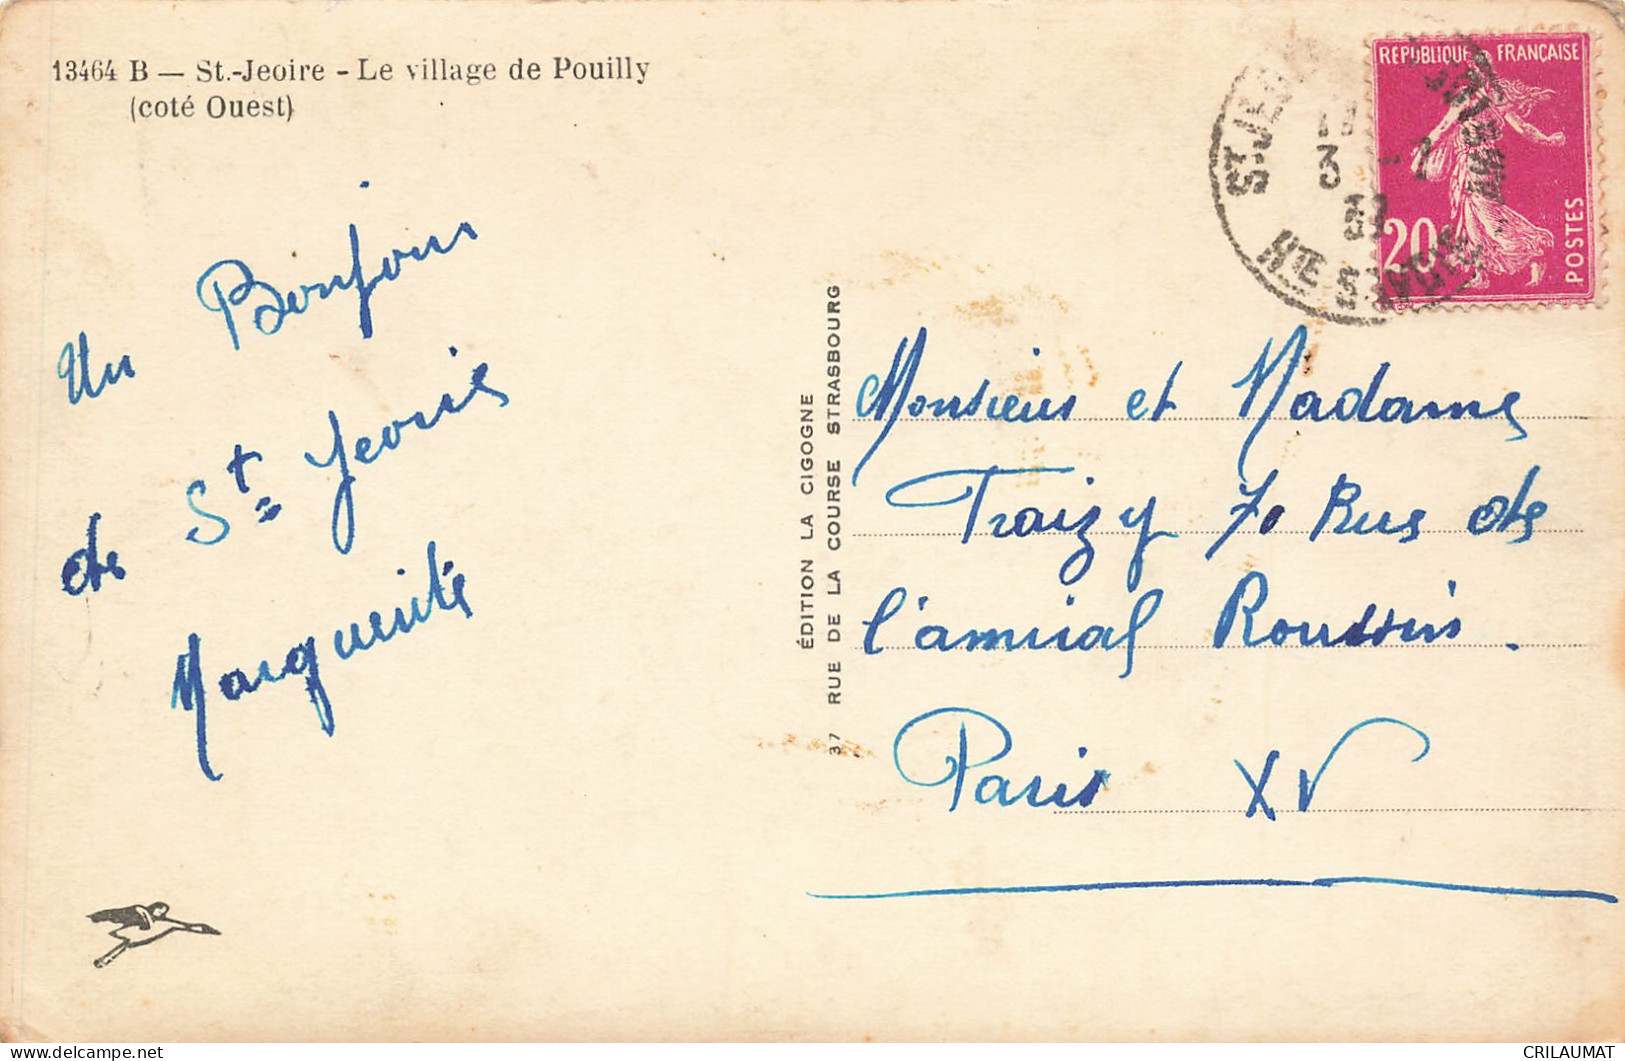 13464 B — St.-Jeoire - Le village de Pouilly
(coté Ouest)
Un Bonjour
de St Jeoire
Marguerite
ÉDITION LA CIGOGNE
37 RUE DE LA COURSE STRASBOURG
RÉPUBLIQUE FRANÇAISE
20
POSTES
ST JEOIRE
3 - 1
HTE SAVOIE
Monsieur et Madame
Traizy 70 Rue de
l'amiral Roussin.
Paris XV
CRILAUMAT